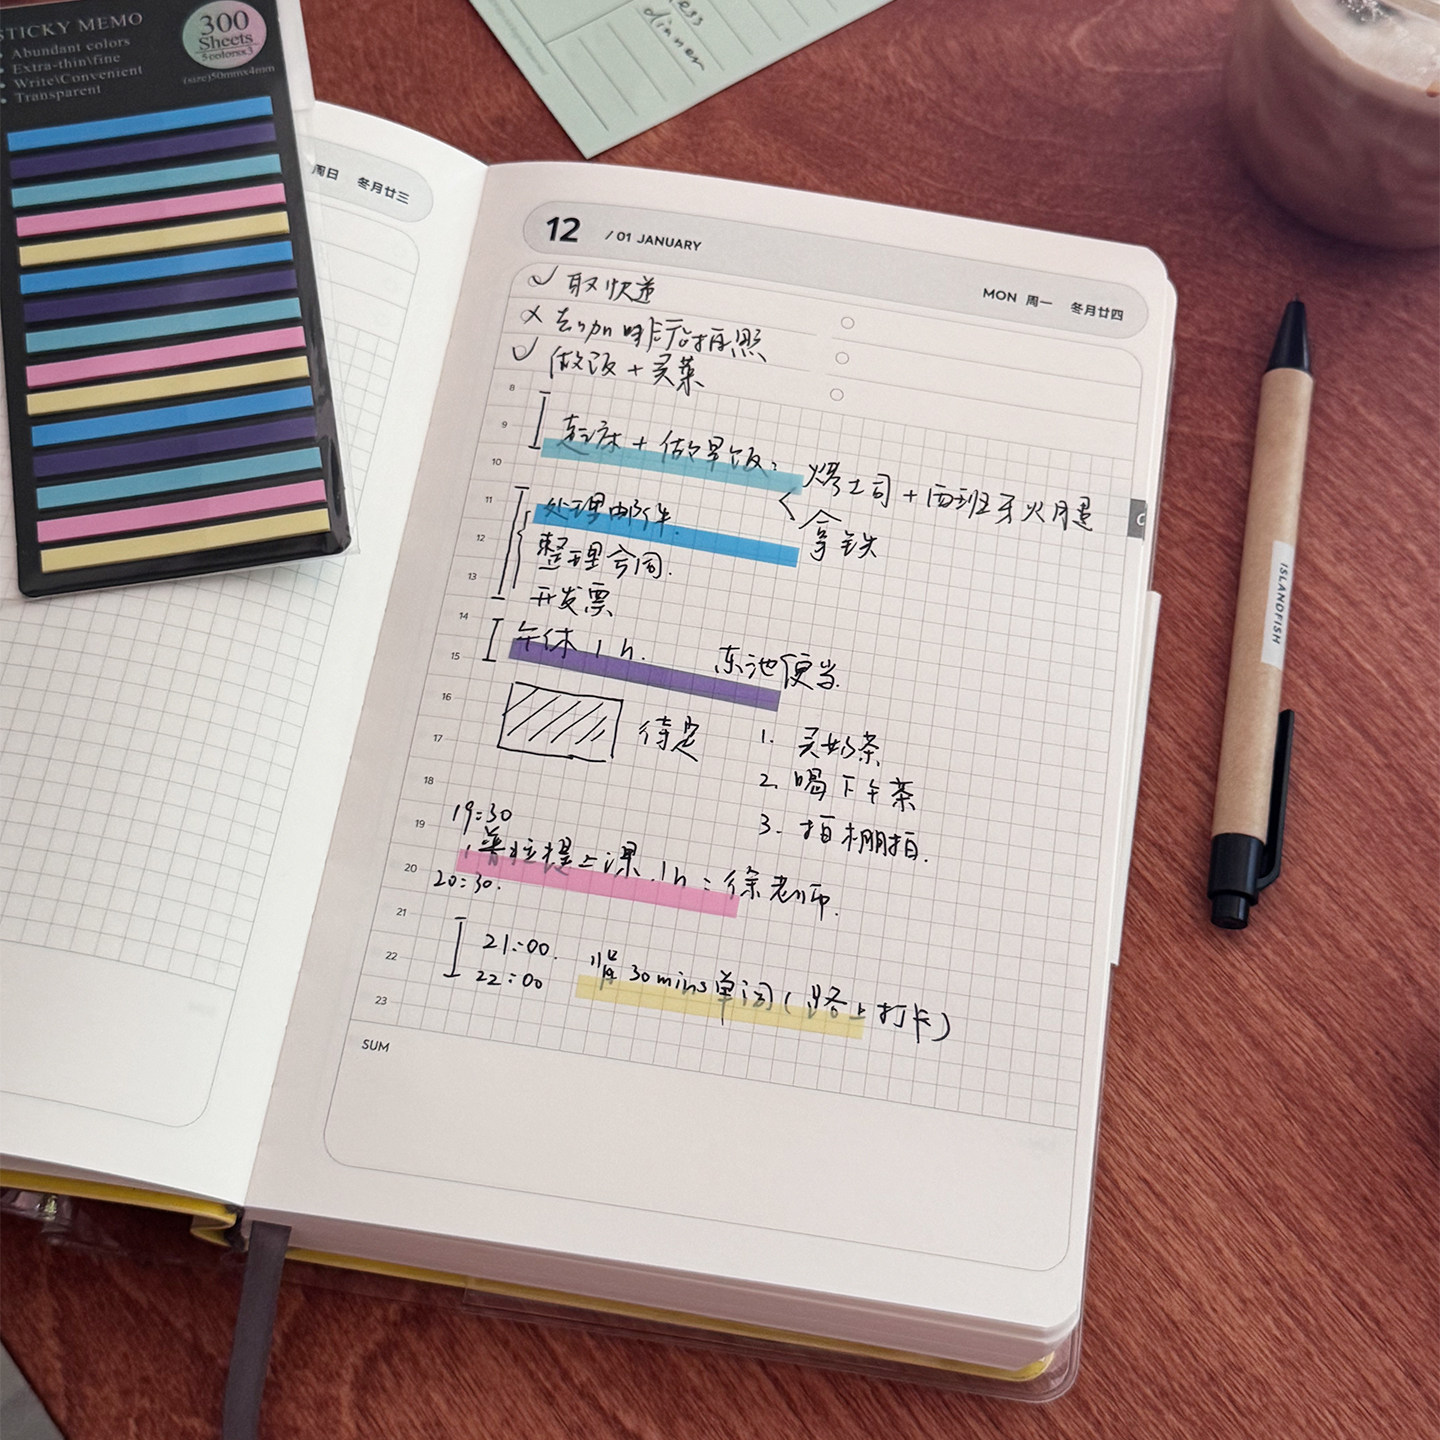 STICKY MEMO
Abundant colors
Extra-thin\fine
Write\Convenient
Transparent
300
Sheets
5colorsx3
(size)50mmx4mm
ess
dinner
周日 冬月廿三
12 / 01 JANUARY
MON 周一 冬月廿四
取快递
去咖啡店拍照
做饭+买菜
8
9
起床+做早饭:
烤土司+西班牙火腿
拿铁
10
11
处理邮件.
12
整理合同.
13
开发票
14
午休1h. 东池便当.
15
16
待定
1. 买奶茶
17
2. 喝下午茶
18
3. 拍棚拍.
19:30
19
普拉提上课.1h:徐老师.
20
20:30.
21
21:00.
背30mins单词(路上打卡)
22
22:00
23
SUM
ISLANDFISH